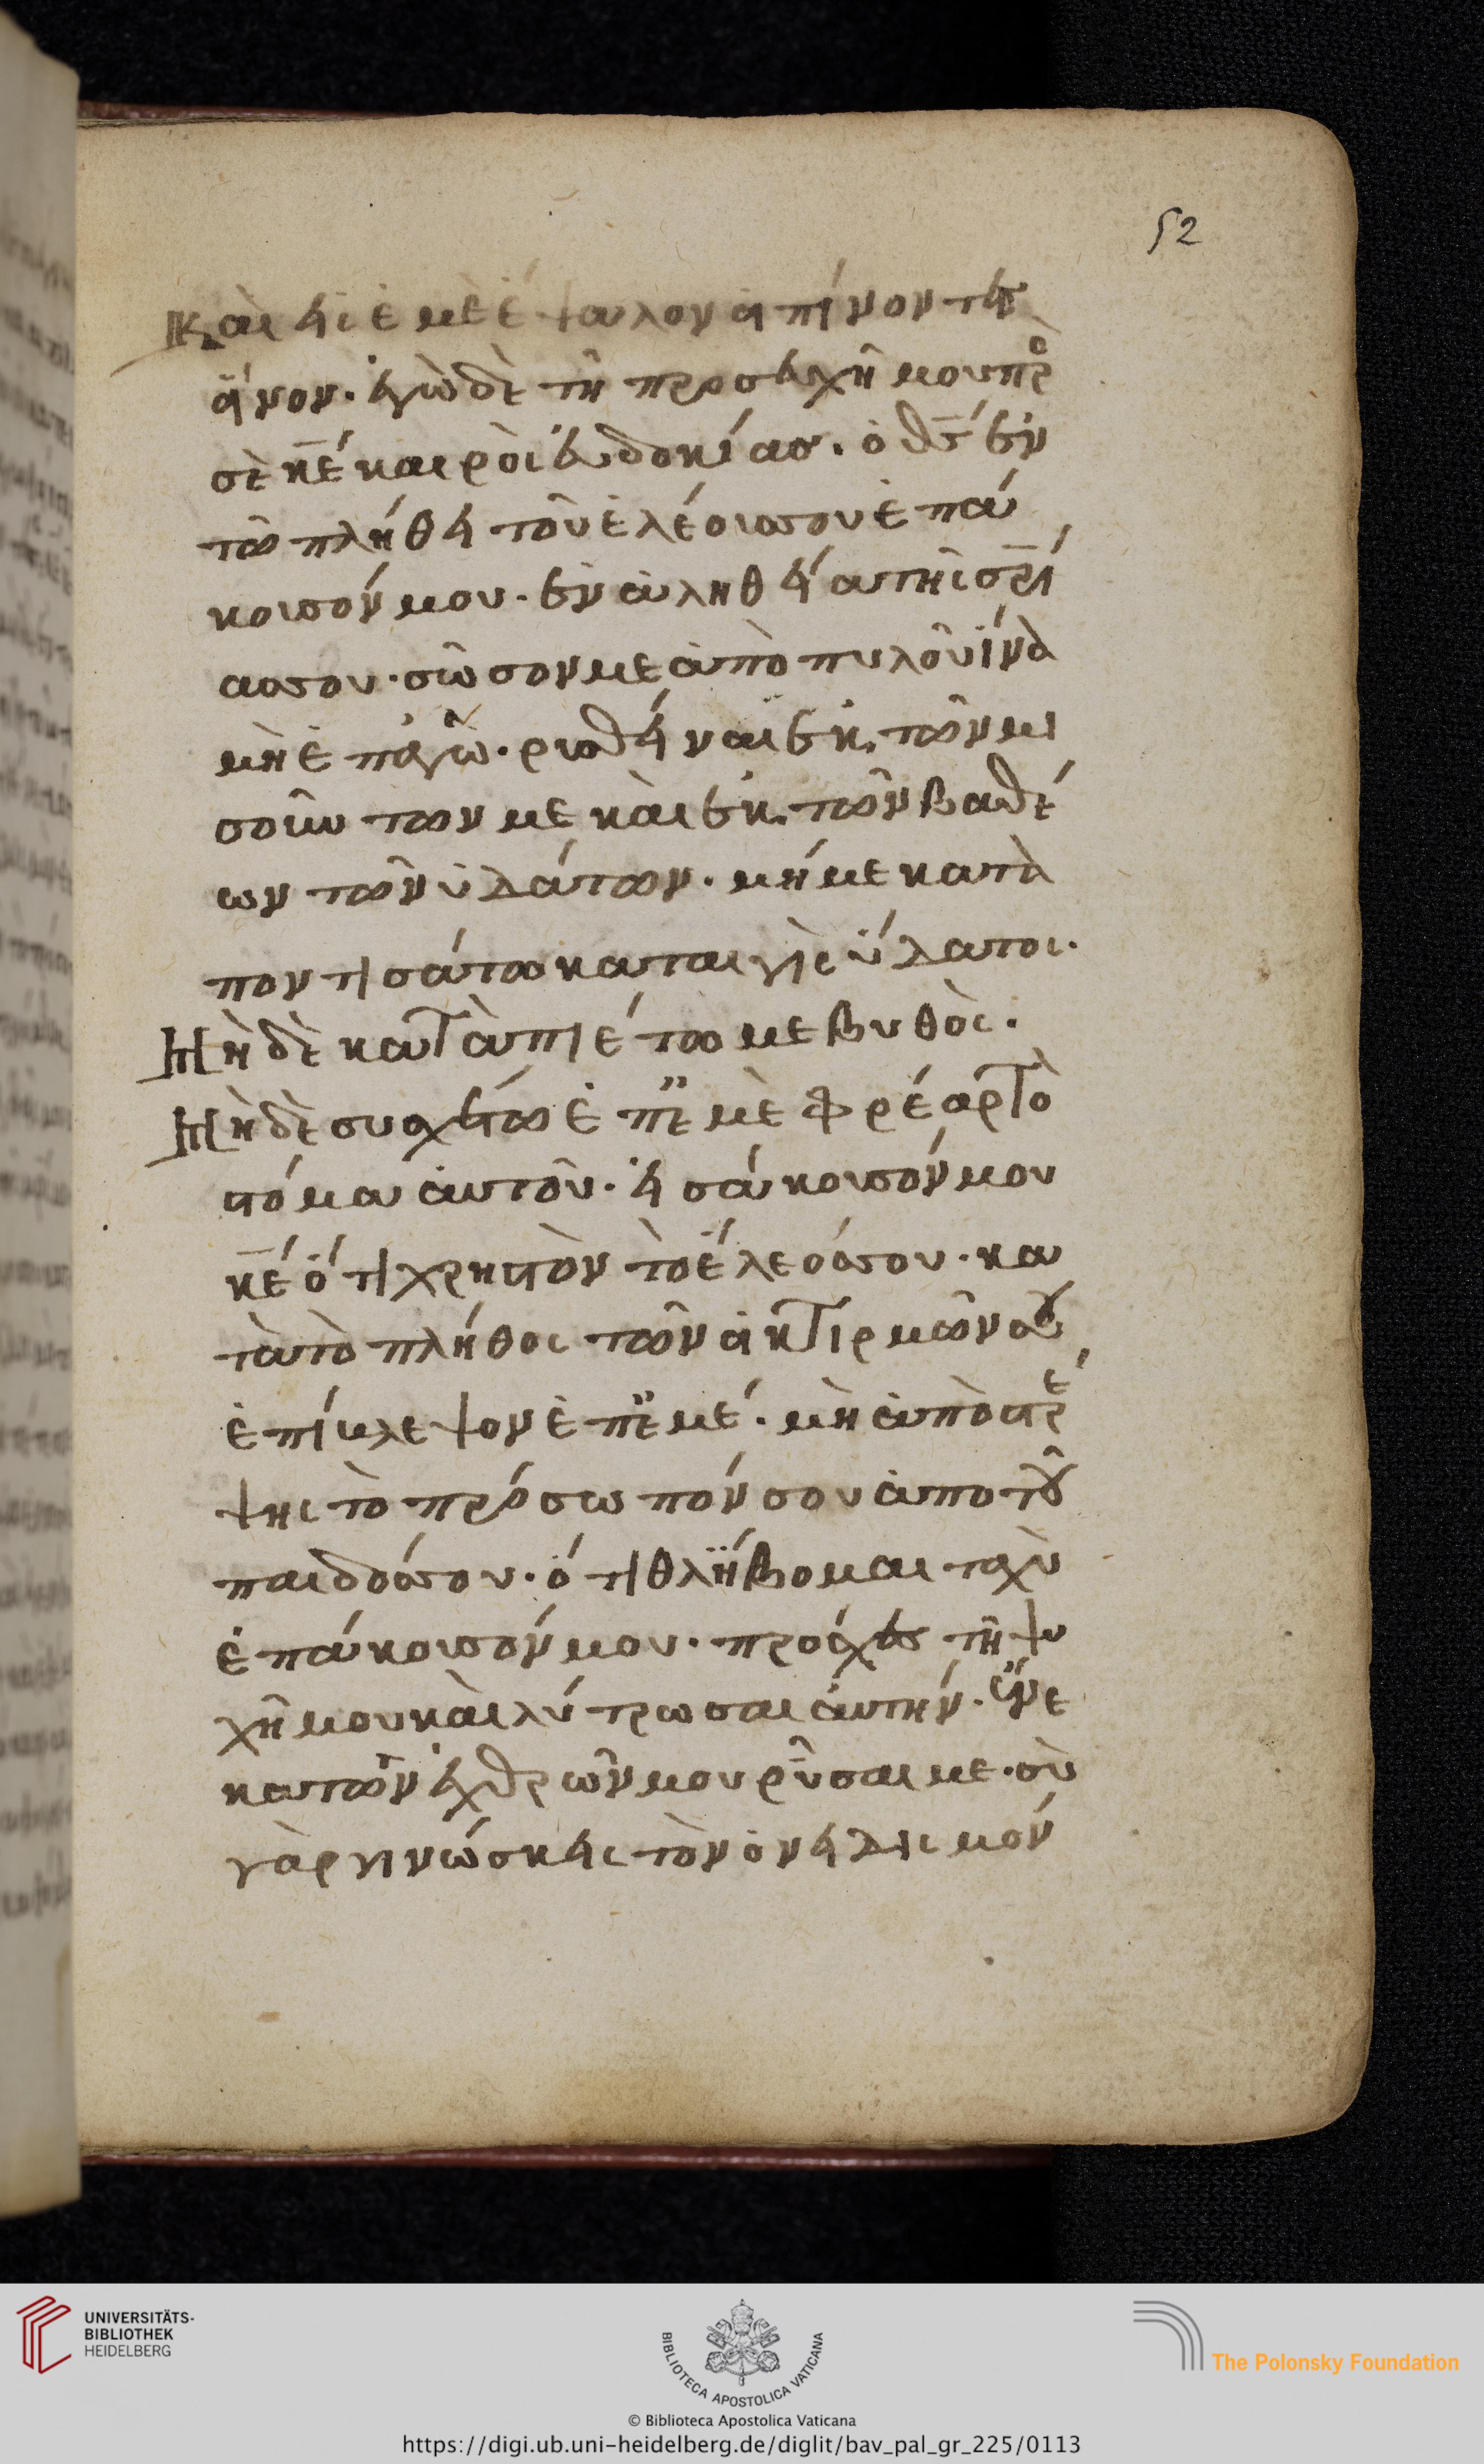 52
Καὶ εἰς ἐμὲ ἔψαλον εἱ πίνοντες
εἴνον· ἐγὼ δὲ τῆ προσευχῆ μου πρὸ
σὲ κ̅έ καιρὸς εὐδοκίας· ὁ θ̅ς ἐν
τῶ πλήθει τοῦ ἐλέους σου ἐπά
κουσόν μου· ἐν ἀληθεία τῆς σρ̅ί
ας σου· σῶσον με ἀπὸ πυλοῦ ἵνὰ
μὴ ἐπαγῶ· ρυσθείναι ἐκ τῶν μι
σούντων με καὶ ἐκ τῶν βαθέ
ων τῶν ὑδάτων· μή με κατὰ
ποντισάτω καταιγὶς ὕδατος·
Μὴ δὲ καταπιέτω με βυθὸς·
Μὴ δὲ συσχέτω ἐπ ἐμὲ φρέαρ τὸ
στόμα αὐτοῦ· εἰσάκουσόν μου
κ̅έ ὅτι χρηστὸν τὸ ἔλεός σου· κα
τὰ τὸ πλήθος τῶν εἰκτιρμῶν σου
ἐπίβλεψον ἐπ ἐμέ· μὴ ἀπὸστρέ
ψης τὸ πρόσωπόν σου ἀπο τοῦ
παιδός σου· ὅτι θλήβομαι ταχὺ
ἐπάκουσόν μου· πρόσχες τῆ ψυ
χῆ μου καὶ λύτρωσαι αὐτήν· ἕνε
κα τῶν ἐχθρῶν μου ρῦσαι με· σὺ
γὰρ γινώσκεις τὸν ὀνειδισμόν
UNIVERSITÄTS-
BIBLIOTHEK
HEIDELBERG
BIBLIOTECA APOSTOLICA VATICANA
The Polonsky Foundation
© Biblioteca Apostolica Vaticana
https://digi.ub.uni-heidelberg.de/diglit/bav_pal_gr_225/0113